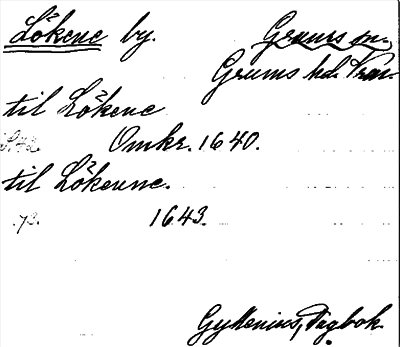 Lökene by. Grums sn.
Grums hd. Vrml.
til Lökene
S. 72 Omkr. 1640.
til Lökenne.
73. 1643.
Gyllenius, Dagbok.